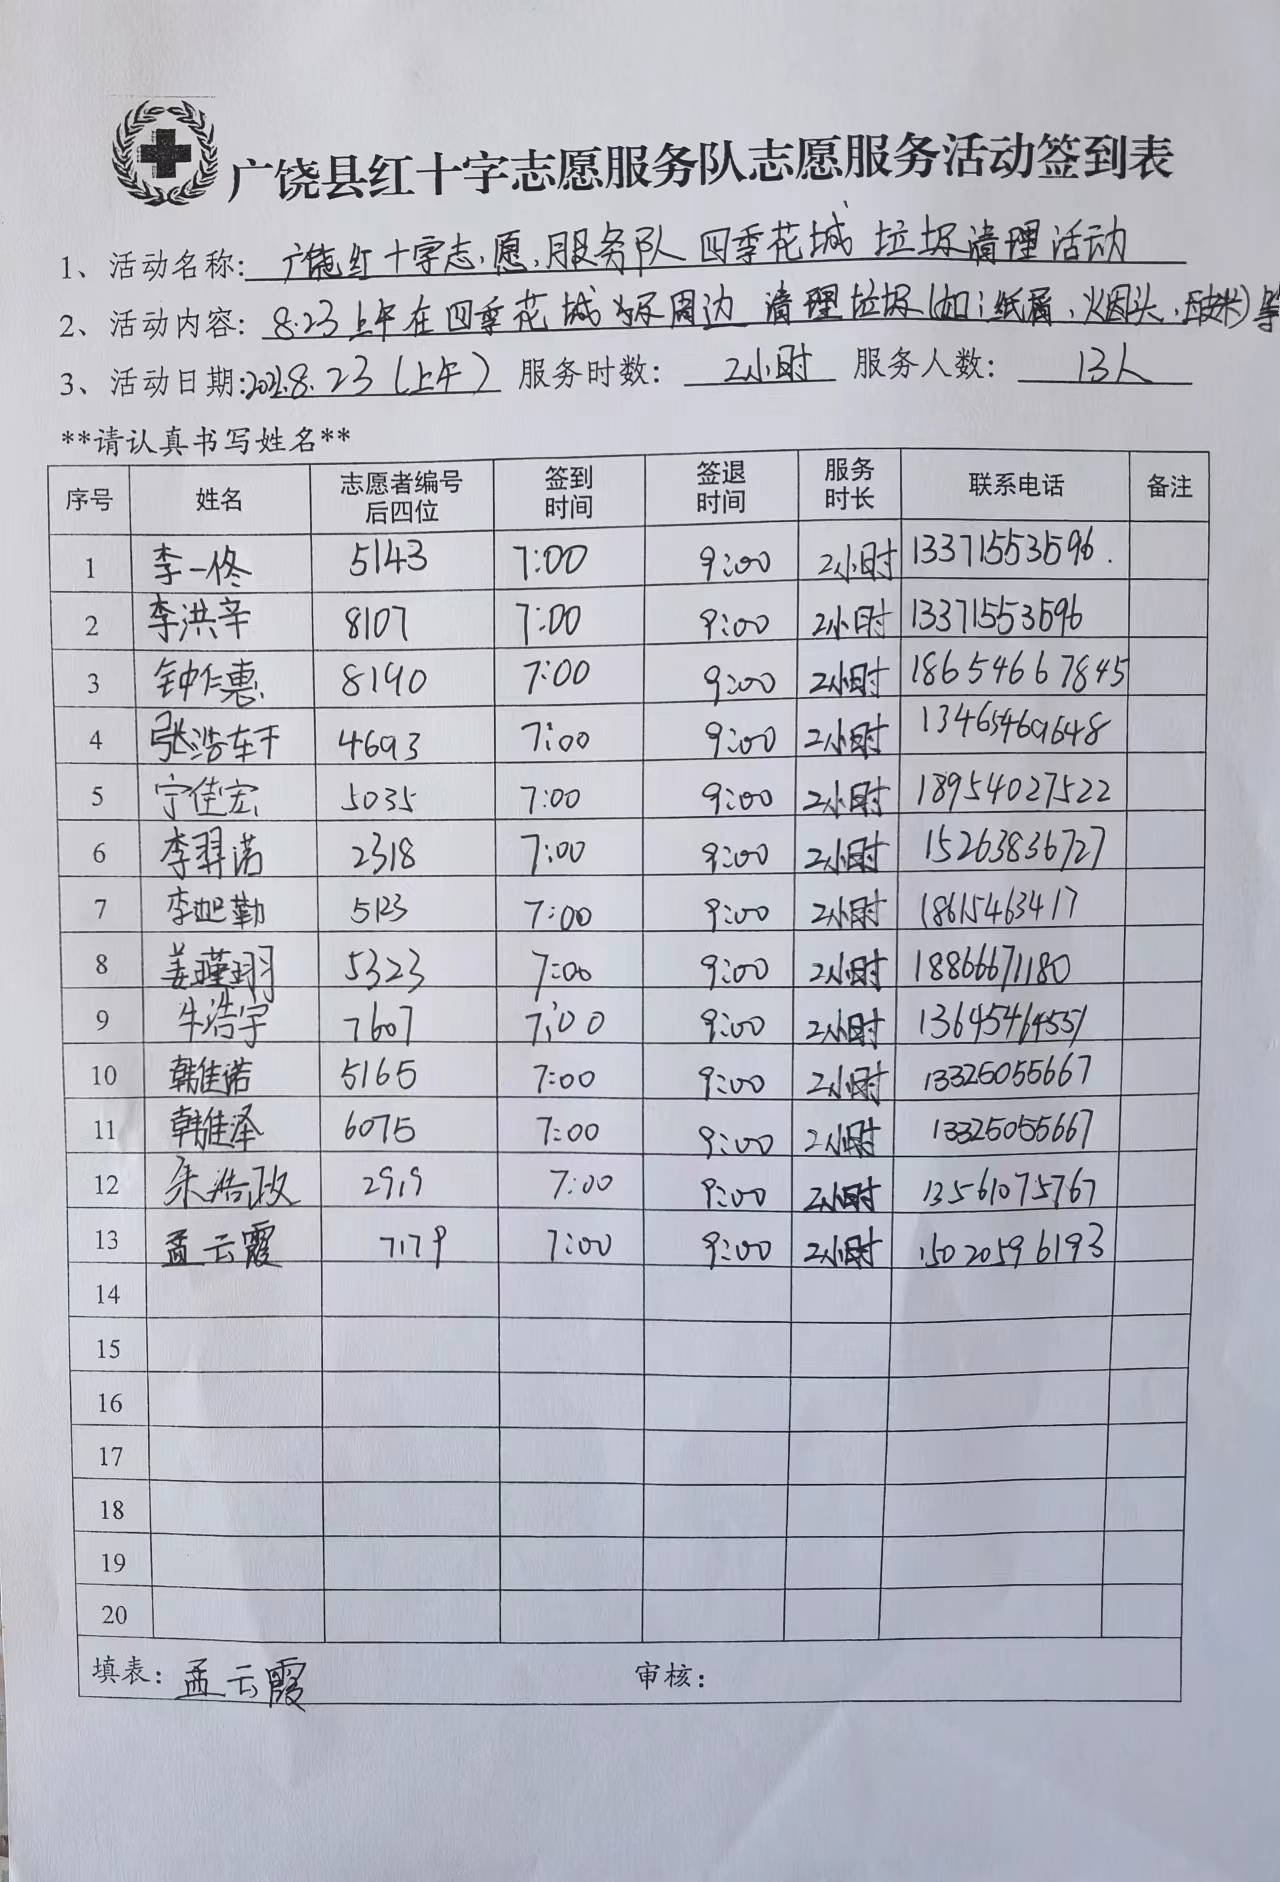 广饶县红十字志愿服务队志愿服务活动签到表
1、活动名称: 广饶红十字志愿服务队四季花城垃圾清理活动
2、活动内容: 8.23上午在四季花城 周边 清理垃圾(如:纸屑、火烟头、 )等
3、活动日期: 8.23(上午) 服务时数: 2小时 服务人数: 13人
**请认真书写姓名**
序号 姓名 志愿者编号后四位 签到时间 签退时间 服务时长 联系电话 备注
1 李一佟 5143 7:00 9:00 2小时 13371553596.
2 李洪辛 8107 7:00 9:00 2小时 13371553596
3 钟仁惠 8190 7:00 9:00 2小时 18654667845
4 张浩轩 4693 7:00 9:00 2小时 13465469648
5 宁佳宏 5035 7:00 9:00 2小时 18954027522
6 李羿诺 2318 7:00 9:00 2小时 15263836727
7 李 勤 5123 7:00 9:00 2小时 18615463417
8 姜瑾翊 5323 7:00 9:00 2小时 18866671180
9 牛浩宇 7607 7:00 9:00 2小时 13645464551
10 韩佳诺 5165 7:00 9:00 2小时 13325055667
11 韩佳泽 6075 7:00 9:00 2小时 13325055667
12 朱浩政 2919 7:00 9:00 2小时 13561075767
13 孟云霞 7179 7:00 9:00 2小时 15020596193
14
15
16
17
18
19
20
填表: 孟云霞 审核: